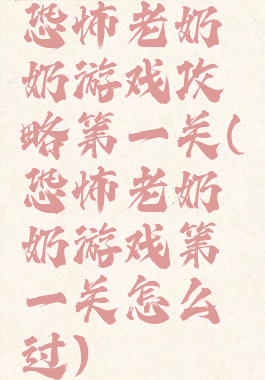 恐怖老奶
奶游戏攻
略第一关(
恐怖老奶
奶游戏第
一关怎么
过)